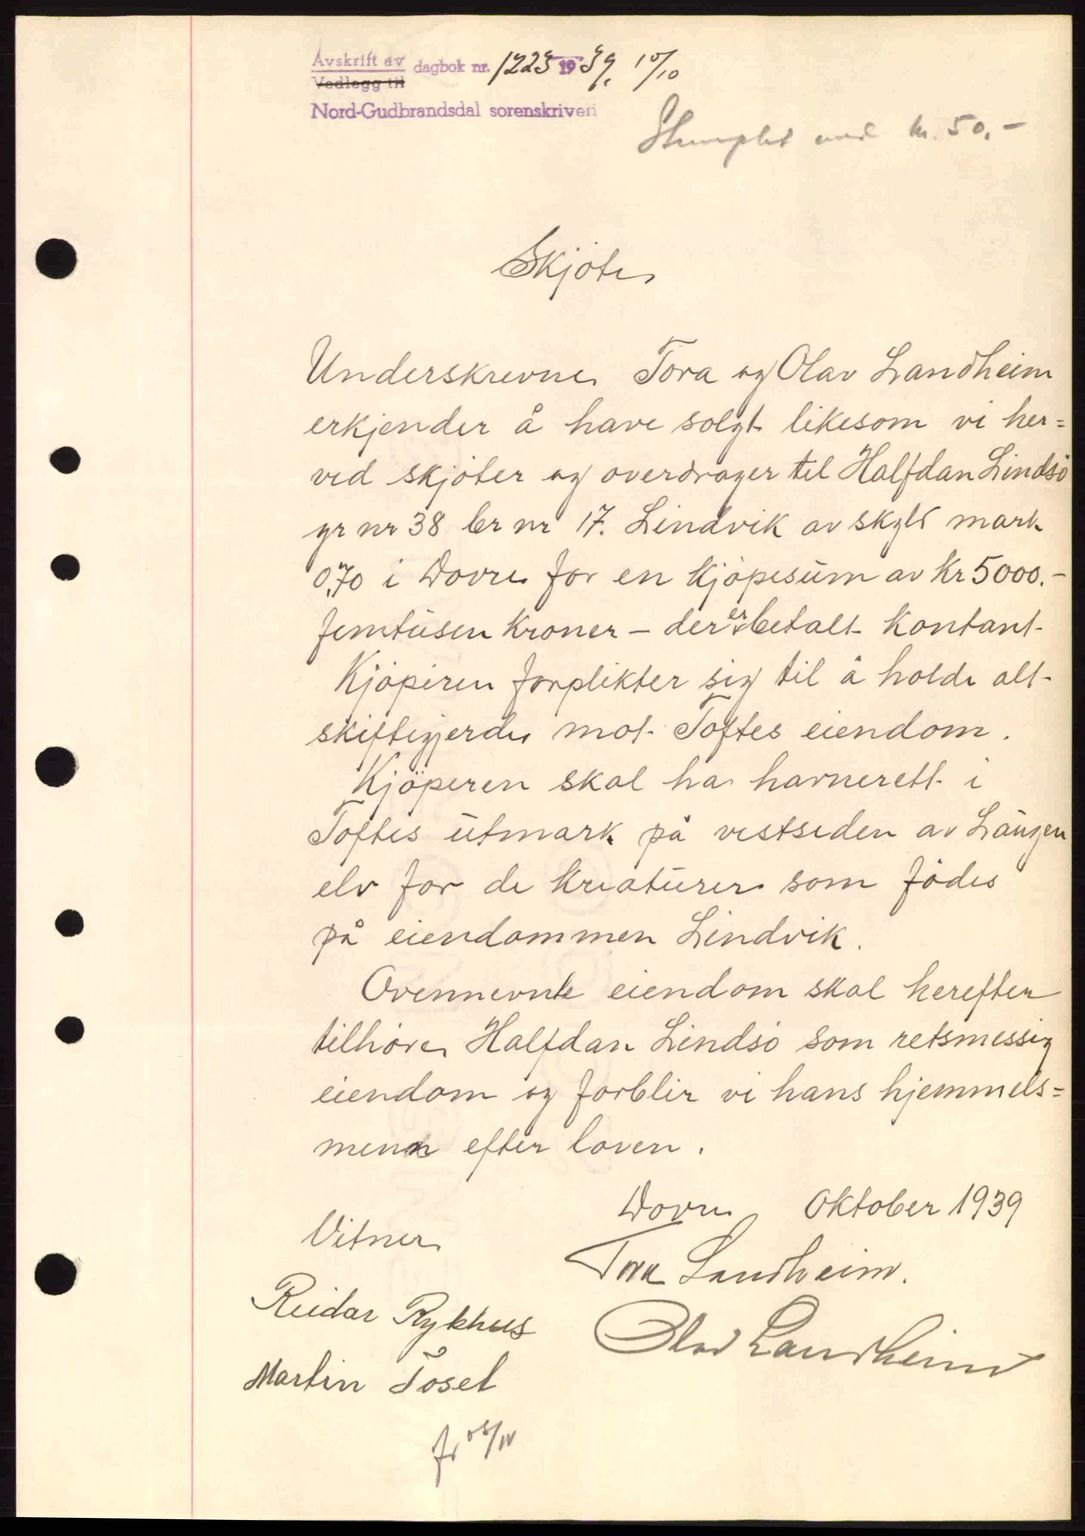 Avskrift av dagbok nr. 1223 1939, 10/10
Vedlegg til
Nord-Gudbrandsdal sorenskriveri
Stemplet med kr. 50.-
Skjöte
Underskrevne Tora og Olav Landheim
erkjender å have solgt likesom vi her=
ved skjöter og overdrager til Halfdan Lindsö
gr nr 38 br nr 17. Lindvik av skyld mark
0,70 i Dovre for en kjöpesum av Kr 5000.-
femtusen kroner - der er betalt kontant-
Kjöperen forplikter sig til å holde alt-
skiftegjerde mot Toftes eiendom.
Kjöperen skal ha havnerett i
Toftes utmark på vestsiden av Laugen
elv for de kreaturer som födes
på eiendommen Lindvik.
Ovennevnte eiendom skal herefter
tilhöre Halfdan Lindsö som retsmessig
eiendom og forblir vi hans hjemmels=
menn efter loven.
Dovre, Oktober 1939
Vitner
Tora Landheim.
Reidar Rykhus
Olav Landheim
Martin Tosel